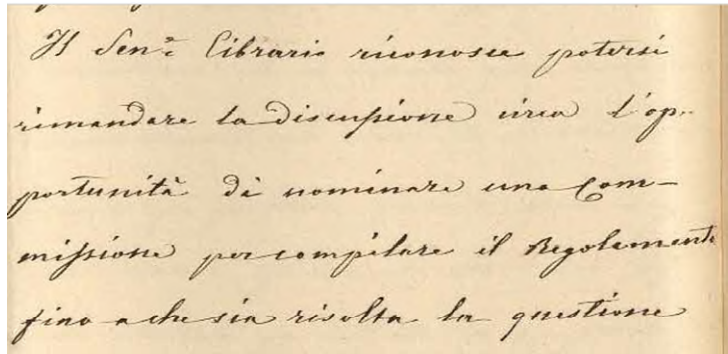 Il Sen.e Cibrario riconosce potersi
rimandare la discussione circa l'op-
portunità di nominare una Com-
missione per compilare il Regolamento
fino a che sia risolta la questione